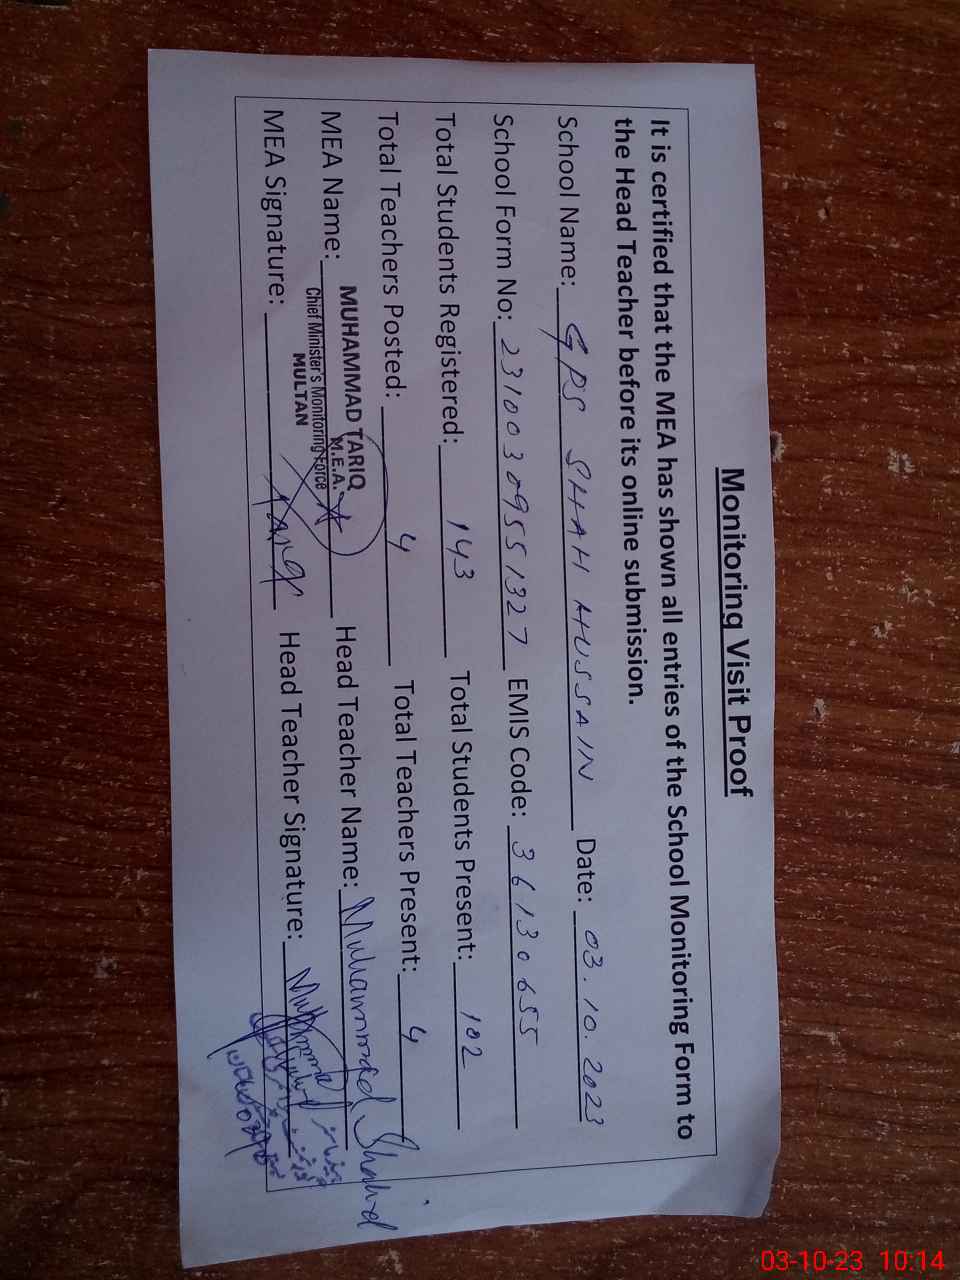 Monitoring Visit Proof
It is certified that the MEA has shown all entries of the School Monitoring Form to
the Head Teacher before its online submission.
School Name: GPS SHAH HUSSAIN Date: 03.10.2023
School Form No: 23100309551327 EMIS Code: 36130655
Total Students Registered: 143 Total Students Present: 102
Total Teachers Posted: 4 Total Teachers Present: 4
MEA Name: MUHAMMAD TARIQ Head Teacher Name: Muhammad Shahid
M.E.A.
Chief Minister's Monitoring Force
MULTAN
MEA Signature: Tariq Head Teacher Signature:
03-10-23 10:14